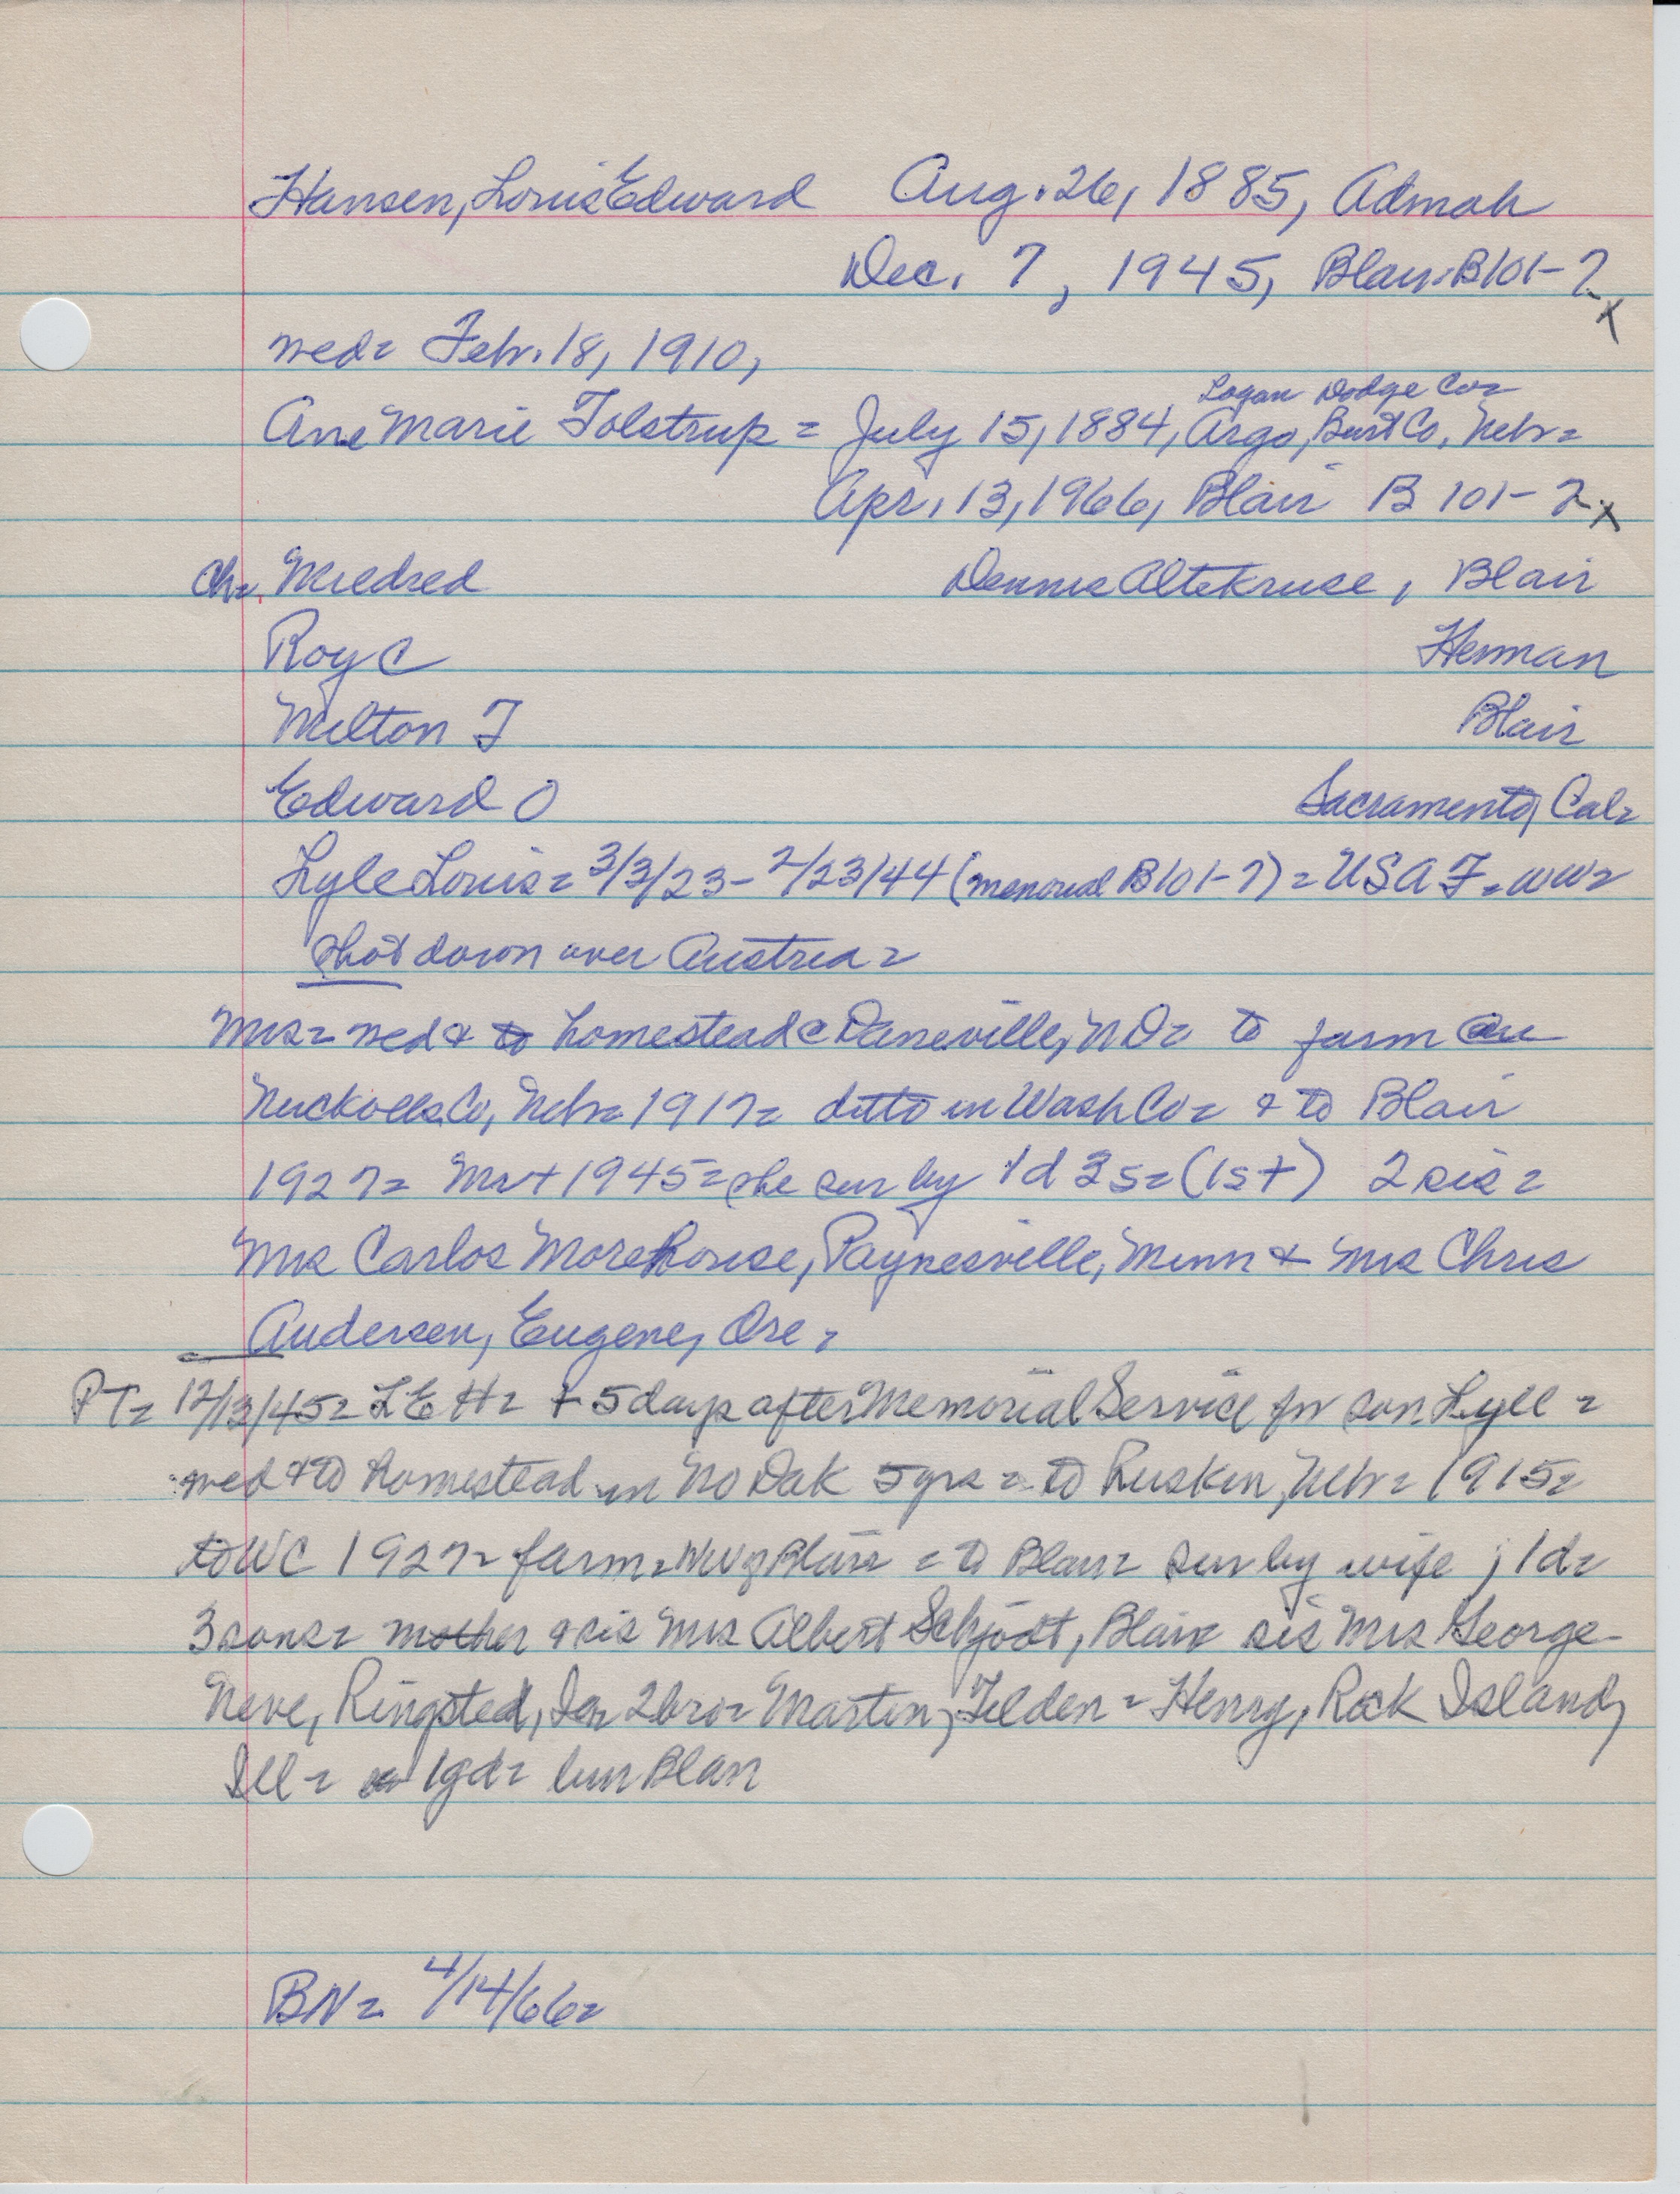 Hansen, Louis Edward Aug. 26, 1885, Admah
Dec. 7, 1945, Blair B101-7
x
wed= Feb. 18, 1910,
Logan Dodge Co=
Ane Marie Tolstrup = July 15, 1884, Argo, Burt Co, Nebr=
Apr. 13, 1966, Blair B 101-7
x
Ch= Mildred Dennis Altekruse, Blair
Roy C Herman
Milton T Blair
Edward O Sacramento, Cal=
Lyle Louis= 3/3/23- 2/23/44 (memorial B101-7) = USAF= WW2
shot down over Austria=
Mrs= wed & to homestead @ Daneville, ND= to farm
Nuckolls Co, Nebr= 1917= ditto in Wash Co= & to Blair
1927= Mr + 1945= she sur by 1d 3s= (1s+) 2 sis=
Mrs Carlos Morehouse, Paynesville, Minn & Mrs Chris
Andersen, Eugene, Ore=
PT= 12/13/45= LEH= + 5 days after Memorial Service for son Lyll =
wed & to homestead in No Dak 5 yrs = to Ruskin, Nebr= 1915=
to WC 1927= farm= NW of Blair = to Blair= sur by wife; 1d=
3 sons= mother & sis Mrs Albert Schjodt, Blair sis Mrs George
Neve, Ringsted, Ia= 2 bro= Martin, Tilden= Henry, Rock Island,
Ill= 1gd= bur Blair
BN= 4/14/66=